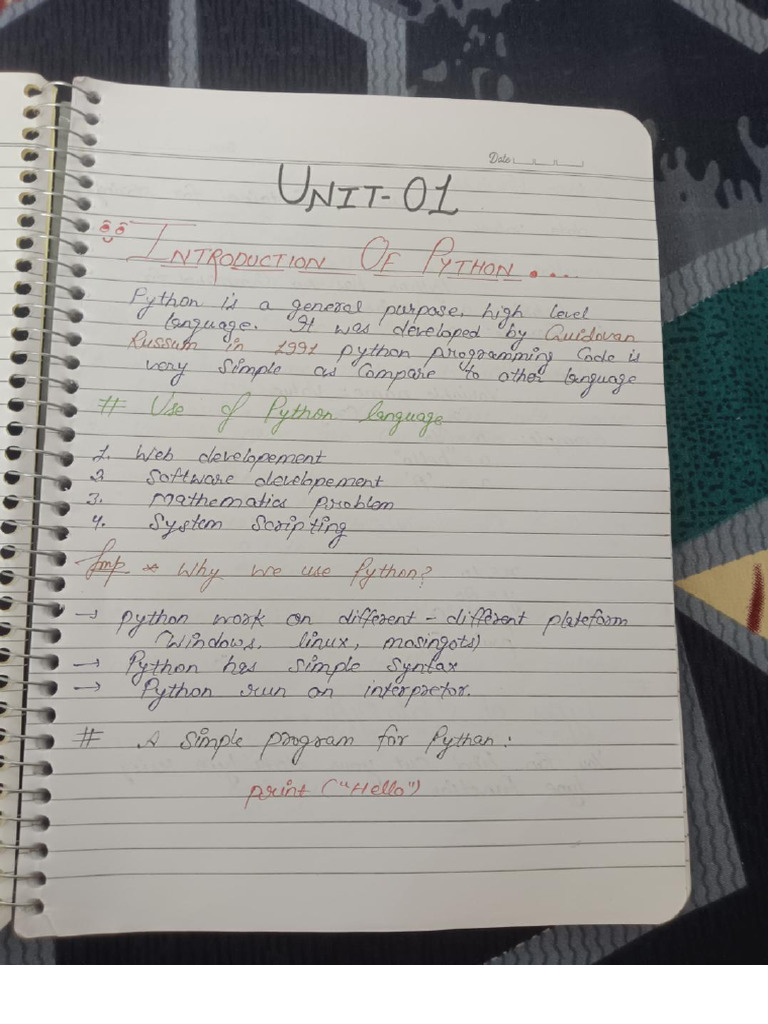 Date
UNIT-01
INTRODUCTION OF PYTHON....
Python is a general purpose, high level
language. It was developed by Guidovan
Russum in 1991 python programming Code is
very simple as compare to other language
# Use of Python language
1. Web developement
2. Software developement
3. Mathematics problem
4. System Scripting
Imp * Why we use Python?
→ python work on different - different plateform
(windows, linux, mosingots)
→ Python has simple syntax
→ Python run on interpretor.
# A simple program for Python:
print ("Hello")